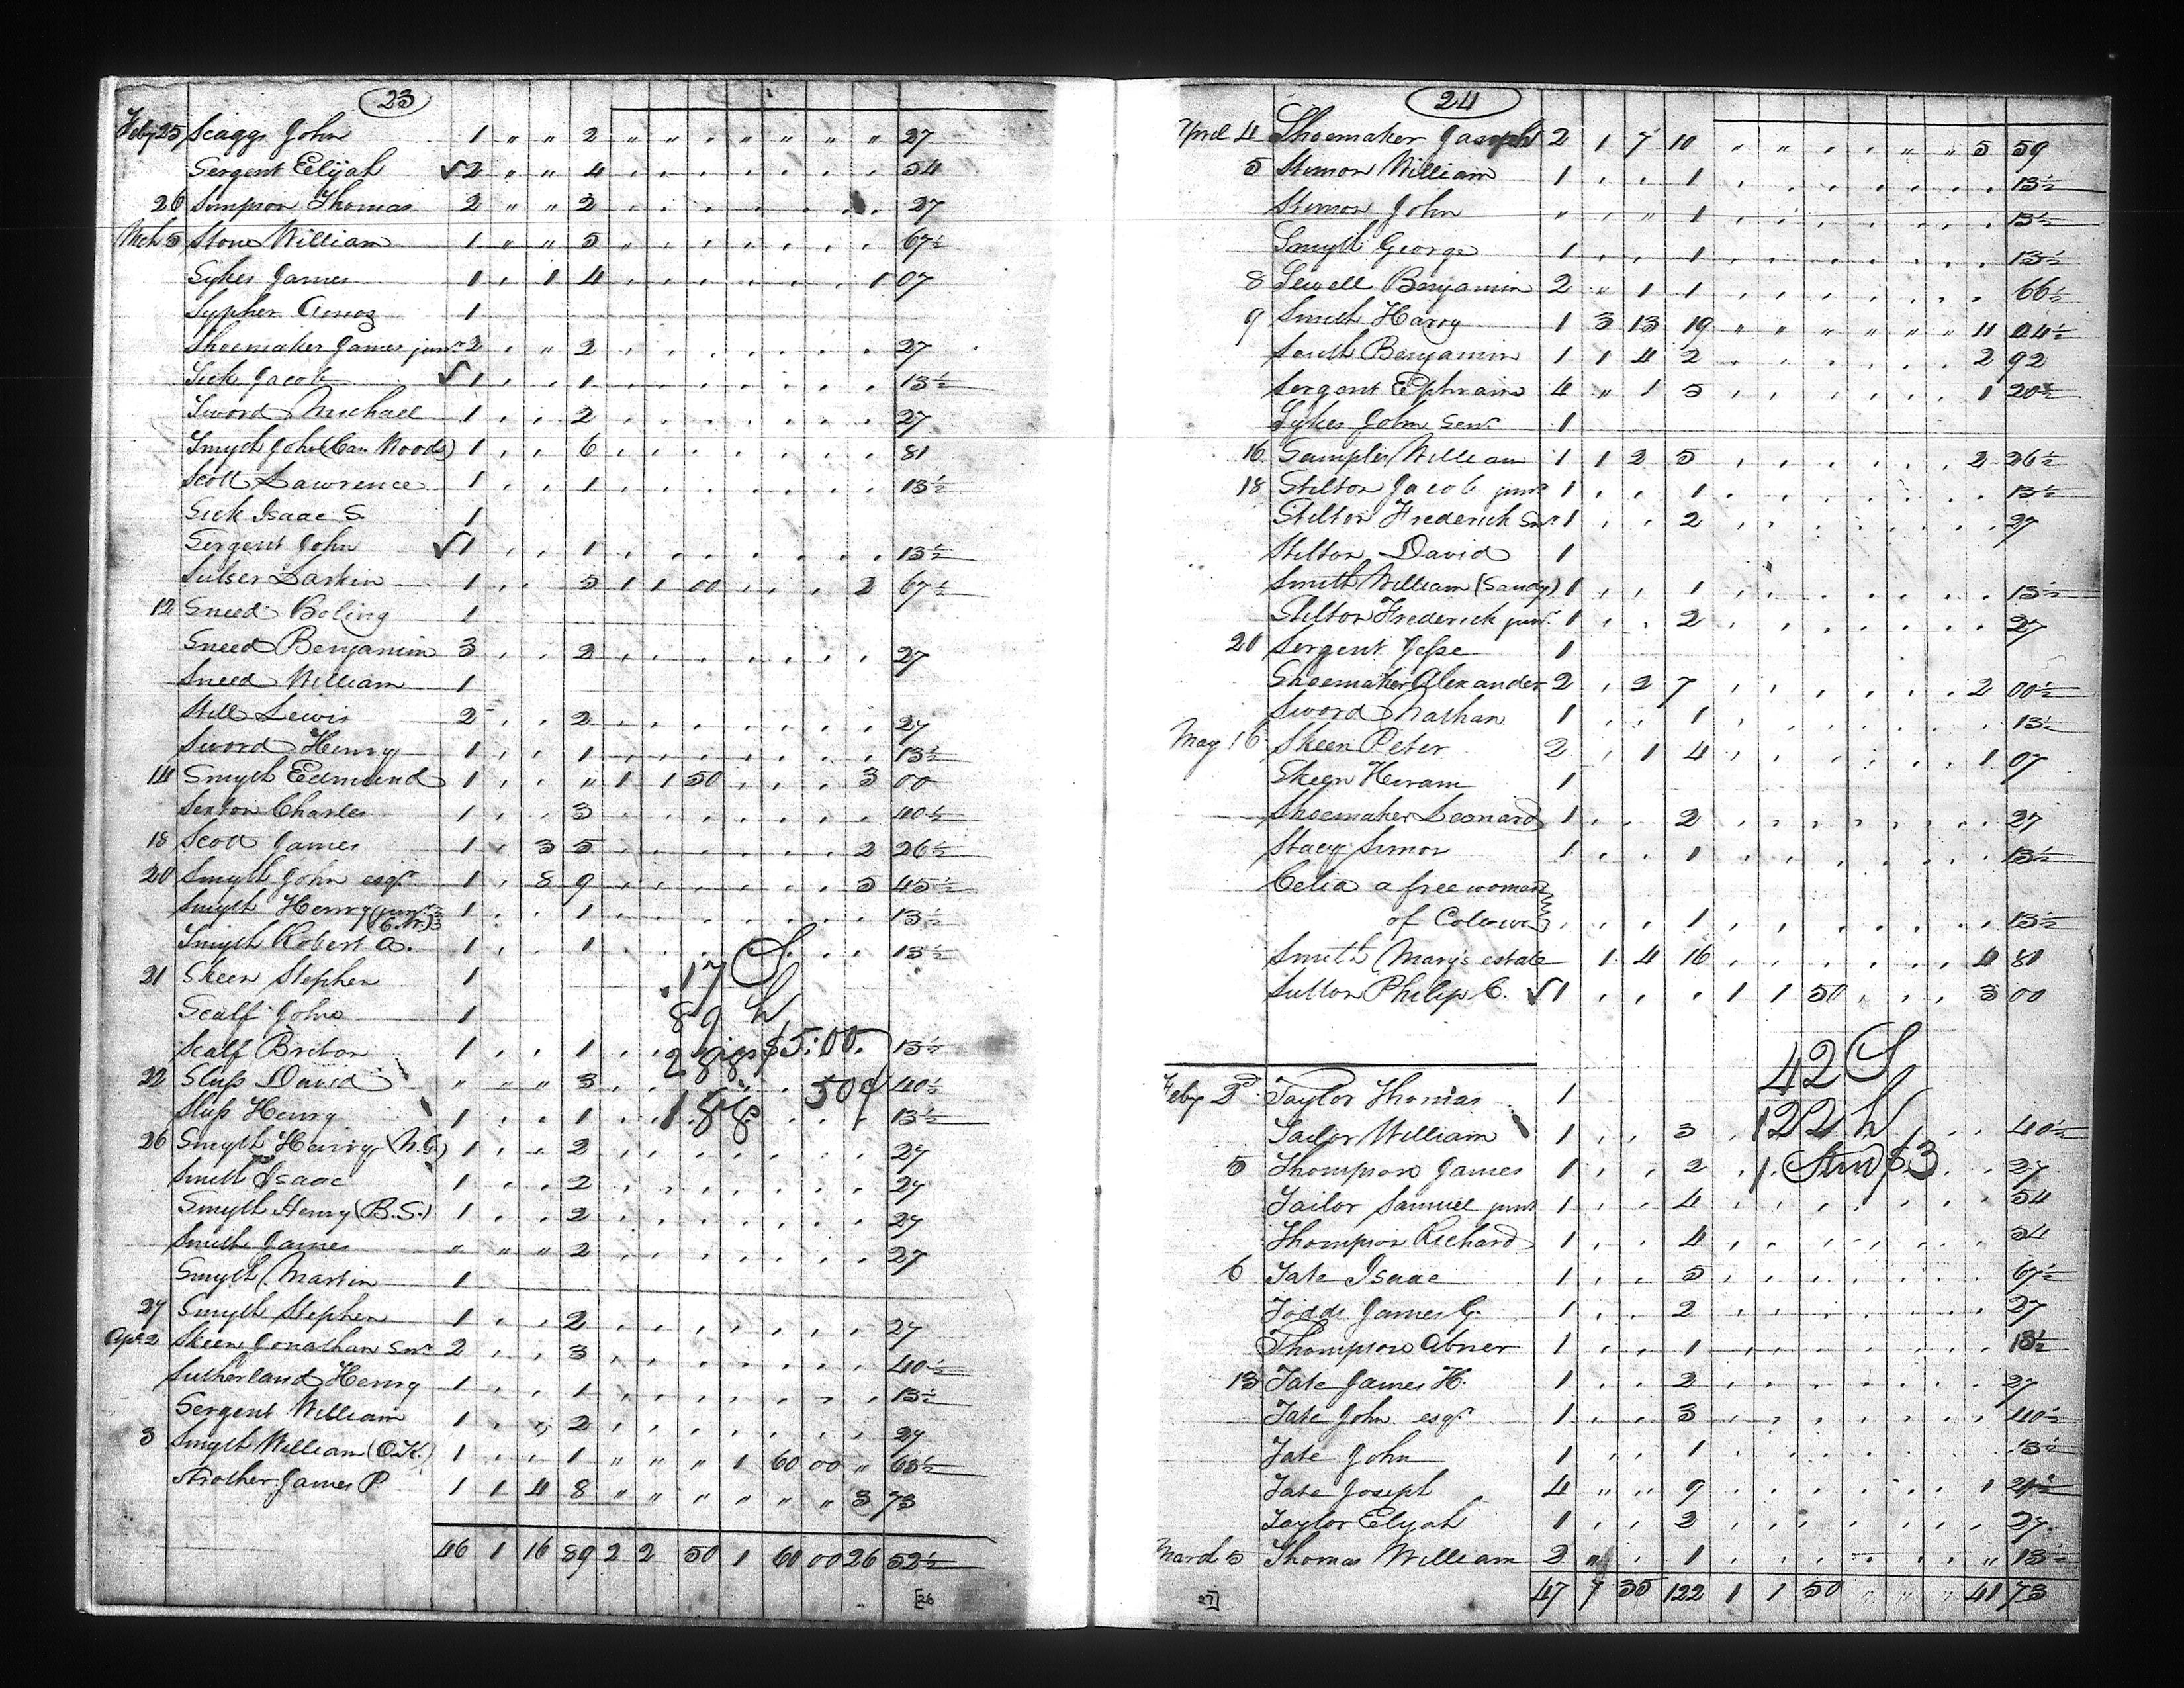 23
Feby 25 Scaggs John 1 " " 2 " " " " " " " " 27
Sergent Elijah √2 " " 4 . . . . . . . . 54
26 Simpson Thomas 2 " " 2 . . . . . . . . 27
Mch 5 Stone William 1 " " 5 " . . . . . . . 67½
Sykes James 1 . 1 4 . . . . . . . 1 07
Sypher Amos 1
Shoemaker James junr 2 . " 2 . . . . . . . . 27
Sick Jacob √1 . . 1 . . . . . . . . 13½
Sword Michael 1 . . 2 . . . . . . . . 27
Smyth John (Can Woods) 1 . . 6 . . . . . . . . 81
Scott Lawrence 1 . . 1 . . . . . . . . 13½
Sick Isaac S. 1
Sergent John √1 . . 1 . . . . . . . . 13½
Sulser Larkin 1 . . 5 1 1 00 . . . 2 67½
12 Sneed Boling 1
Sneed Benjamin 3 . . 2 . . . . . . . . 27
Sneed William 1
Still Lewis 2 . . 2 . . . . . . . . 27
Sword Henry 1 . . 1 . . . . . . . . 13½
14 Smyth Edmund 1 . . " 1 1 50 . . . 3 00
Sexton Charles 1 . . 3 . . . . . . . . 40½
18 Scott James 1 . 3 5 . . . . . . . 2 26½
20 Smyth John esqr 1 . 8 9 . . . . . . . 5 45½
Smyth Henry (junr 1 . . 1 . . . . . . . . 13½
Smyth Robert A. 1 . . 1 . . . . . . . . 13½
17 S
21 Skeen Stephen 1
Scalf John 1
89 h
Scalf Briton 1 . . 1 . . . . . . 13½
2 gigs $5:00
22 Sluss David " " " 3 . . . . 40½
Sluss Henry 1 . . 1 . . . . 13½
1 gig 50
26 Smyth Henry (N.G.) 1 . . 2 . . . . . . . . 27
Smith Isaac 1 . . 2 . . . . . . . . 27
Smyth Henry (B.S.) 1 . . 2 . . . . . . . . 27
Smith James " " " 2 . . . . . . . . 27
Smyth Martin 1
27 Smyth Stephen 1 . . 2 . . . . . . . . 27
Apr 2 Skeen Jonathan Snr 2 . . 3 . . . . . . . . 40½
Sutherland Henry 1 . . 1 . . . . . . . . 13½
Sergent William 1 . " 2 . . . . . . . . 27
3 Smyth William (O.K.) 1 . . 1 " " " 1 60 00 " 63½
Strother James P. 1 1 4 8 " " " " " " 3 73
46 1 16 89 2 2 50 1 60 00 26 52½
[26
24
April 4 Shoemaker Joseph 2 1 7 10 " " . . " " 5 59
5 Stimon William 1 . . 1 . . . . . . . . 13½
Stimon John " . " 1 . . . . . . . . 13½
Smyth George 1 . . 1 . . . . . . . . 13½
8 Sewell Benjamin 2 " 1 1 . . . . . . . . 66½
9 Smith Harry 1 3 13 19 " " " " " " 11 44½
South Benjamin 1 1 4 2 . . . . . . 2 92
Sergent Ephraim 4 " 1 5 . . . . . . 1 20½
Sykes John Senr 1
16 Samples William 1 1 2 5 . . . . . . 2 26½
18 Stilton Jacob junr 1 . . 1 . . . . . . . 13½
Stilton Frederick Snr 1 . . 2 . . . . . . . 27
Stilton David 1
Smith William (Sandy) 1 . . 1 . . . . . . . 13½
Stilton Frederick junr 1 . . 2 . . . . . . . 27
20 Sergent Jesse 1
Shoemaker Alexander 2 . 2 7 . . . . . . 2 00½
Sword Nathan 1 . . 1 . . . . . . . 13½
May 16 Skeen Peter 2 . 1 4 . . . . . . 1 07
Skeen Hiram 1
Shoemaker Leonard 1 . . 2 . . . . . . . 27
Stacy Simon 1 . . 1 . . . . . . . 13½
Celia a free woman
of Colour . . . 1 . . . . . . . 13½
Smith Mary's estate 1 4 16 . . . . . . 4 81
Sutton Philip C. √1 . . . 1 1 50 . . . 3 00
42 S
Feby 2d Taylor Thomas 1
122 h
Tailor William 1 . . 3 . . . 40½
5 Thompson James 1 . . 2 . . . 27
1 Stud $3
Tailor Samuel junr 1 . . 4 . . . . . . . 54
Thompson Richard 1 . . 4 . . . . . . . 54
6 Tate Isaac 1 . . 5 . . . . . . . 67½
Todds James G. 1 . . 2 . . . . . . . 27
Thompson Abner 1 . . 1 . . . . . . . 13½
13 Tate James H. 1 . . 2 . . . . . . . 27
Tate John esqr 1 . . 3 . . . . . . . 40½
Tate John 1 . . 1 . . . . . . . 13½
Tate Joseph 4 " " 9 . . . . . . 1 21½
Taylor Elijah 1 . . 2 . . . . . . . 27
March 5 Thomas William 2 " . 1 . . . . . . " 13½
47 7 35 122 1 1 50 " " " 41 73
27]